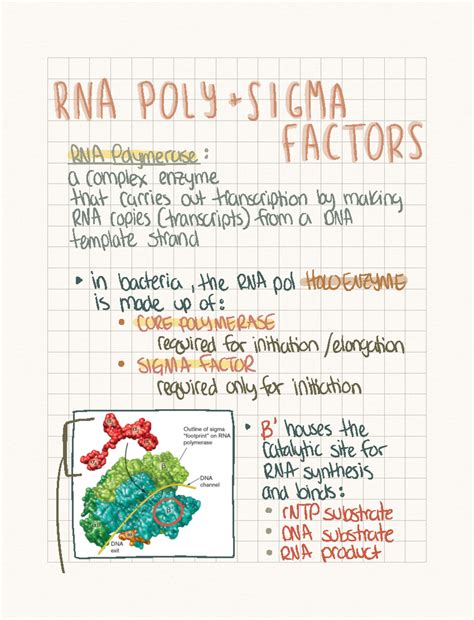 RNA POLY + SIGMA
FACTORS
RNA Polymerase :
a complex enzyme
that carries out transcription by making
RNA copies (transcripts) from a DNA
template strand
in bacteria, the RNA pol HOLOENZYME
is made up of:
CORE POLYMERASE
required for initiation /elongation
SIGMA FACTOR
required only for initiation
Outline of sigma
"footprint" on RNA
polymerase
DNA
channel
DNA
exit
B' houses the
catalytic site for
RNA synthesis
and binds:
rNTP substrate
DNA substrate
RNA product